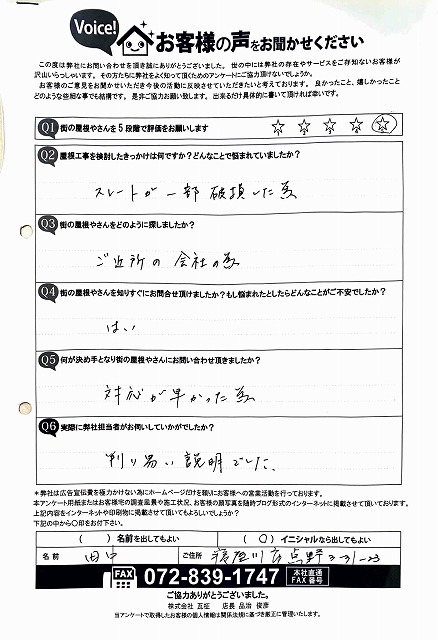 Voice!
お客様の声をお聞かせください
この度は弊社にお問い合わせを頂き誠にありがとうございました。世の中には弊社の存在やサービスをご存知ないお客様が
沢山いらっしゃいます。その方たちに弊社をよく知って頂くためのアンケートにご協力頂けないでしょうか。
お客様のご意見をお聞かせいただき今後の活動に反映させていただきたいと考えております。良かったこと、嬉しかったこと
どのような些細な事でも結構です。是非ご協力お願い致します。出来るだけ具体的に書いて頂ければ幸いです。
Q1 街の屋根やさんを5段階で評価をお願いします
Q2 屋根工事を検討したきっかけは何ですか?どんなことで悩まれていましたか?
スレートが一部破損した為
Q3 街の屋根やさんをどのように探しましたか?
ご近所の会社の為
Q4 街の屋根やさんを知りすぐにお問合せ頂けましたか?もし悩まれたとしたらどんなことがご不安でしたか?
はい
Q5 何が決め手となり街の屋根やさんにお問い合わせ頂きましたか?
対応が早かった為
Q6 実際に弊社担当者がお伺いしていかがでしたか?
判り易い説明でした。
*弊社は広告宣伝費を極力かけない為にホームページだけを頼りにお客様への営業活動を行っております。
本アンケート用紙またはお客様宅の調査風景や施工状況、お客様の顔写真を随時ブログ形式のインターネットに掲載させて頂いております。
上記内容をインターネットや印刷物に掲載させて頂いてもよろしいでしょうか?
下記の中から○印をお付下さい。
( ) 名前を出してもよい ( ○ ) イニシャルなら出してもよい
名前 田中 ご住所 寝屋川市点野3-31-23
FAX 072-839-1747 本社直通 FAX番号
ご協力ありがとうございました。
株式会社 瓦征 店長 品治 俊彦
当アンケートで取得したお客様の個人情報は関係法規に基づき厳正に管理いたします。